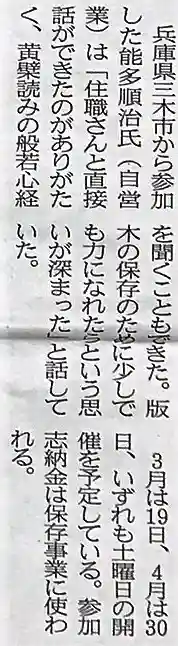 兵庫県三木市から参加
した能多順治氏（自営
業）は「住職さんと直接
話ができたのがありがた
く、黄檗読みの般若心経
を聞くこともできた。版
木の保存のために少しで
も力になれたらという思
いが深まった」と話して
いた。
３月は19日、４月は30
日、いずれも土曜日の開
催を予定している。参加
志納金は保存事業に使わ
れる。